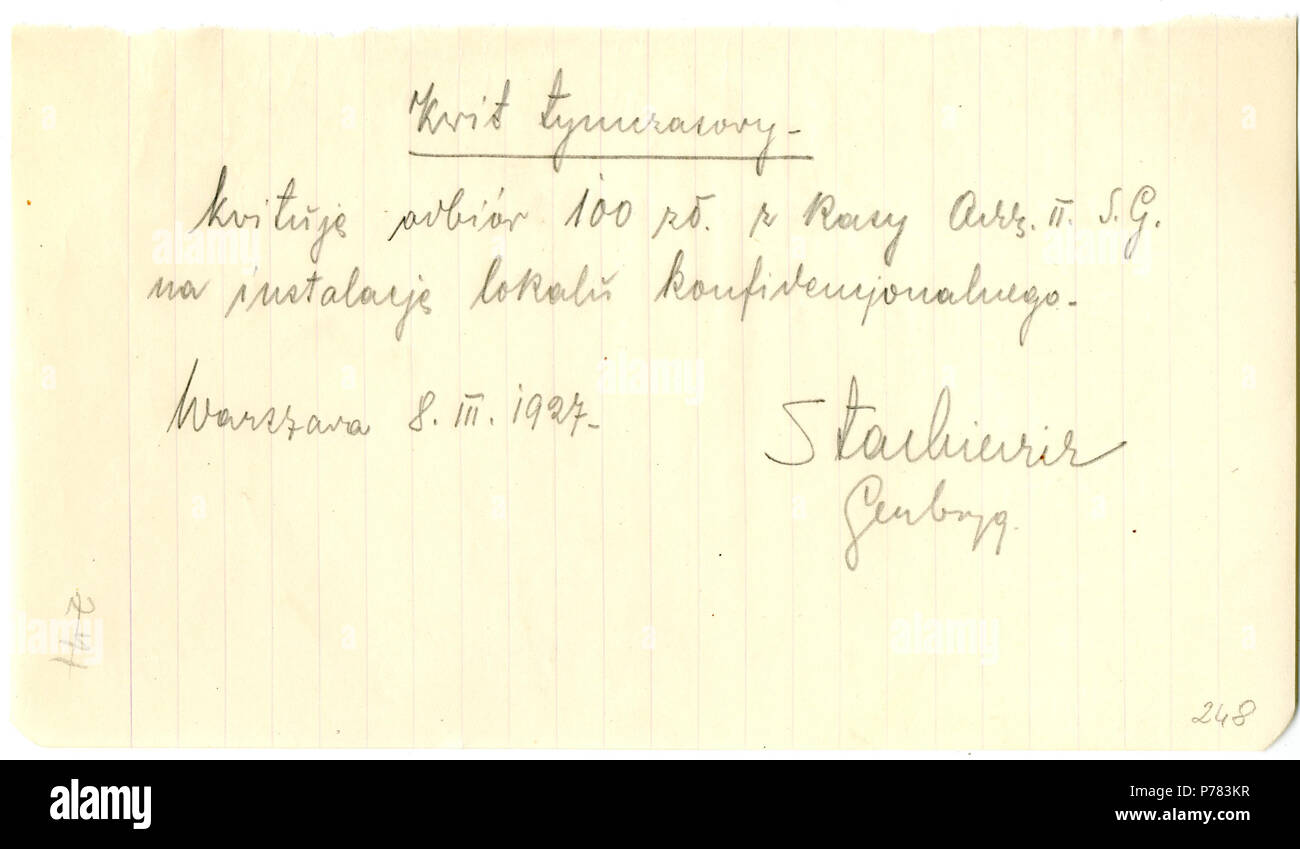 Kwit tymczasowy -
Kwituję odbiór 100 zł. z kasy Odd. II. S.G.
na instalację lokalu konfidencjonalnego.-
Warszawa 8. III. 1927.-
Stachiewicz
Genbryg.
247
248
alamy
Image ID: P783KR
www.alamy.com